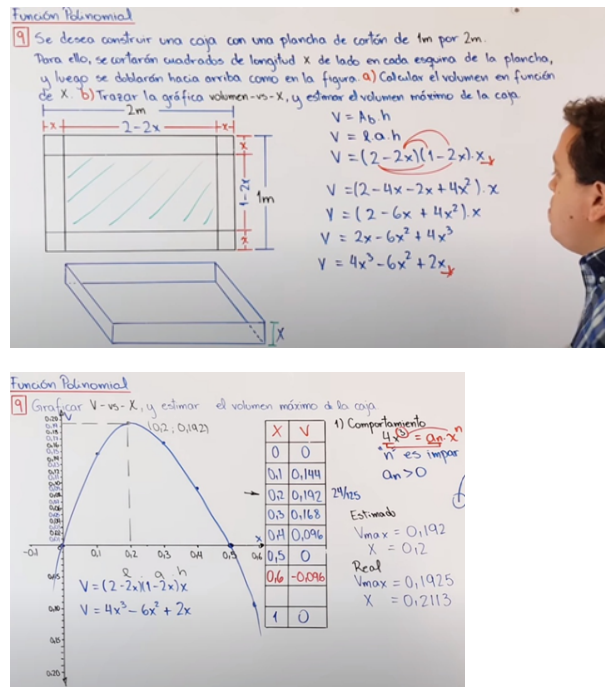 Función Polinomial
9 Se desea construir una caja con una plancha de cartón de 1m por 2m.
Para ello, se cortarán cuadrados de longitud x de lado en cada esquina de la plancha,
y luego se doblarán hacia arriba como en la figura. a) Calcular el volumen en función
de x. b) Trazar la gráfica volumen-vs-x, y estimar el volumen máximo de la caja
2m
x 2-2x x
x
1-2x 1m
x
x
V = Ab.h
V = l.a.h
V = (2-2x)(1-2x).x
V = (2-4x-2x+4x²).x
V = (2-6x+4x²).x
V = 2x-6x²+4x³
V = 4x³-6x²+2x
Función Polinomial
9 Graficar V-vs-x, y estimar el volumen máximo de la caja
V
0,20
(0,2 ; 0,192)
-0,1 0,1 0,2 0,3 0,4 0,5 0,6 x
0,10
0,15
0,20
l a h
V=(2-2x)(1-2x)x
V=4x³-6x²+2x
X V
0 0
0,1 0,144
0,2 0,192 24/125
0,3 0,168
0,4 0,096
0,5 0
0,6 -0,096
1 0
1) Comportamiento
4x³ = an.xⁿ
"n" es impar
an>0
Estimado
Vmax = 0,192
X = 0,2
Real
Vmax = 0,1925
X = 0,2113